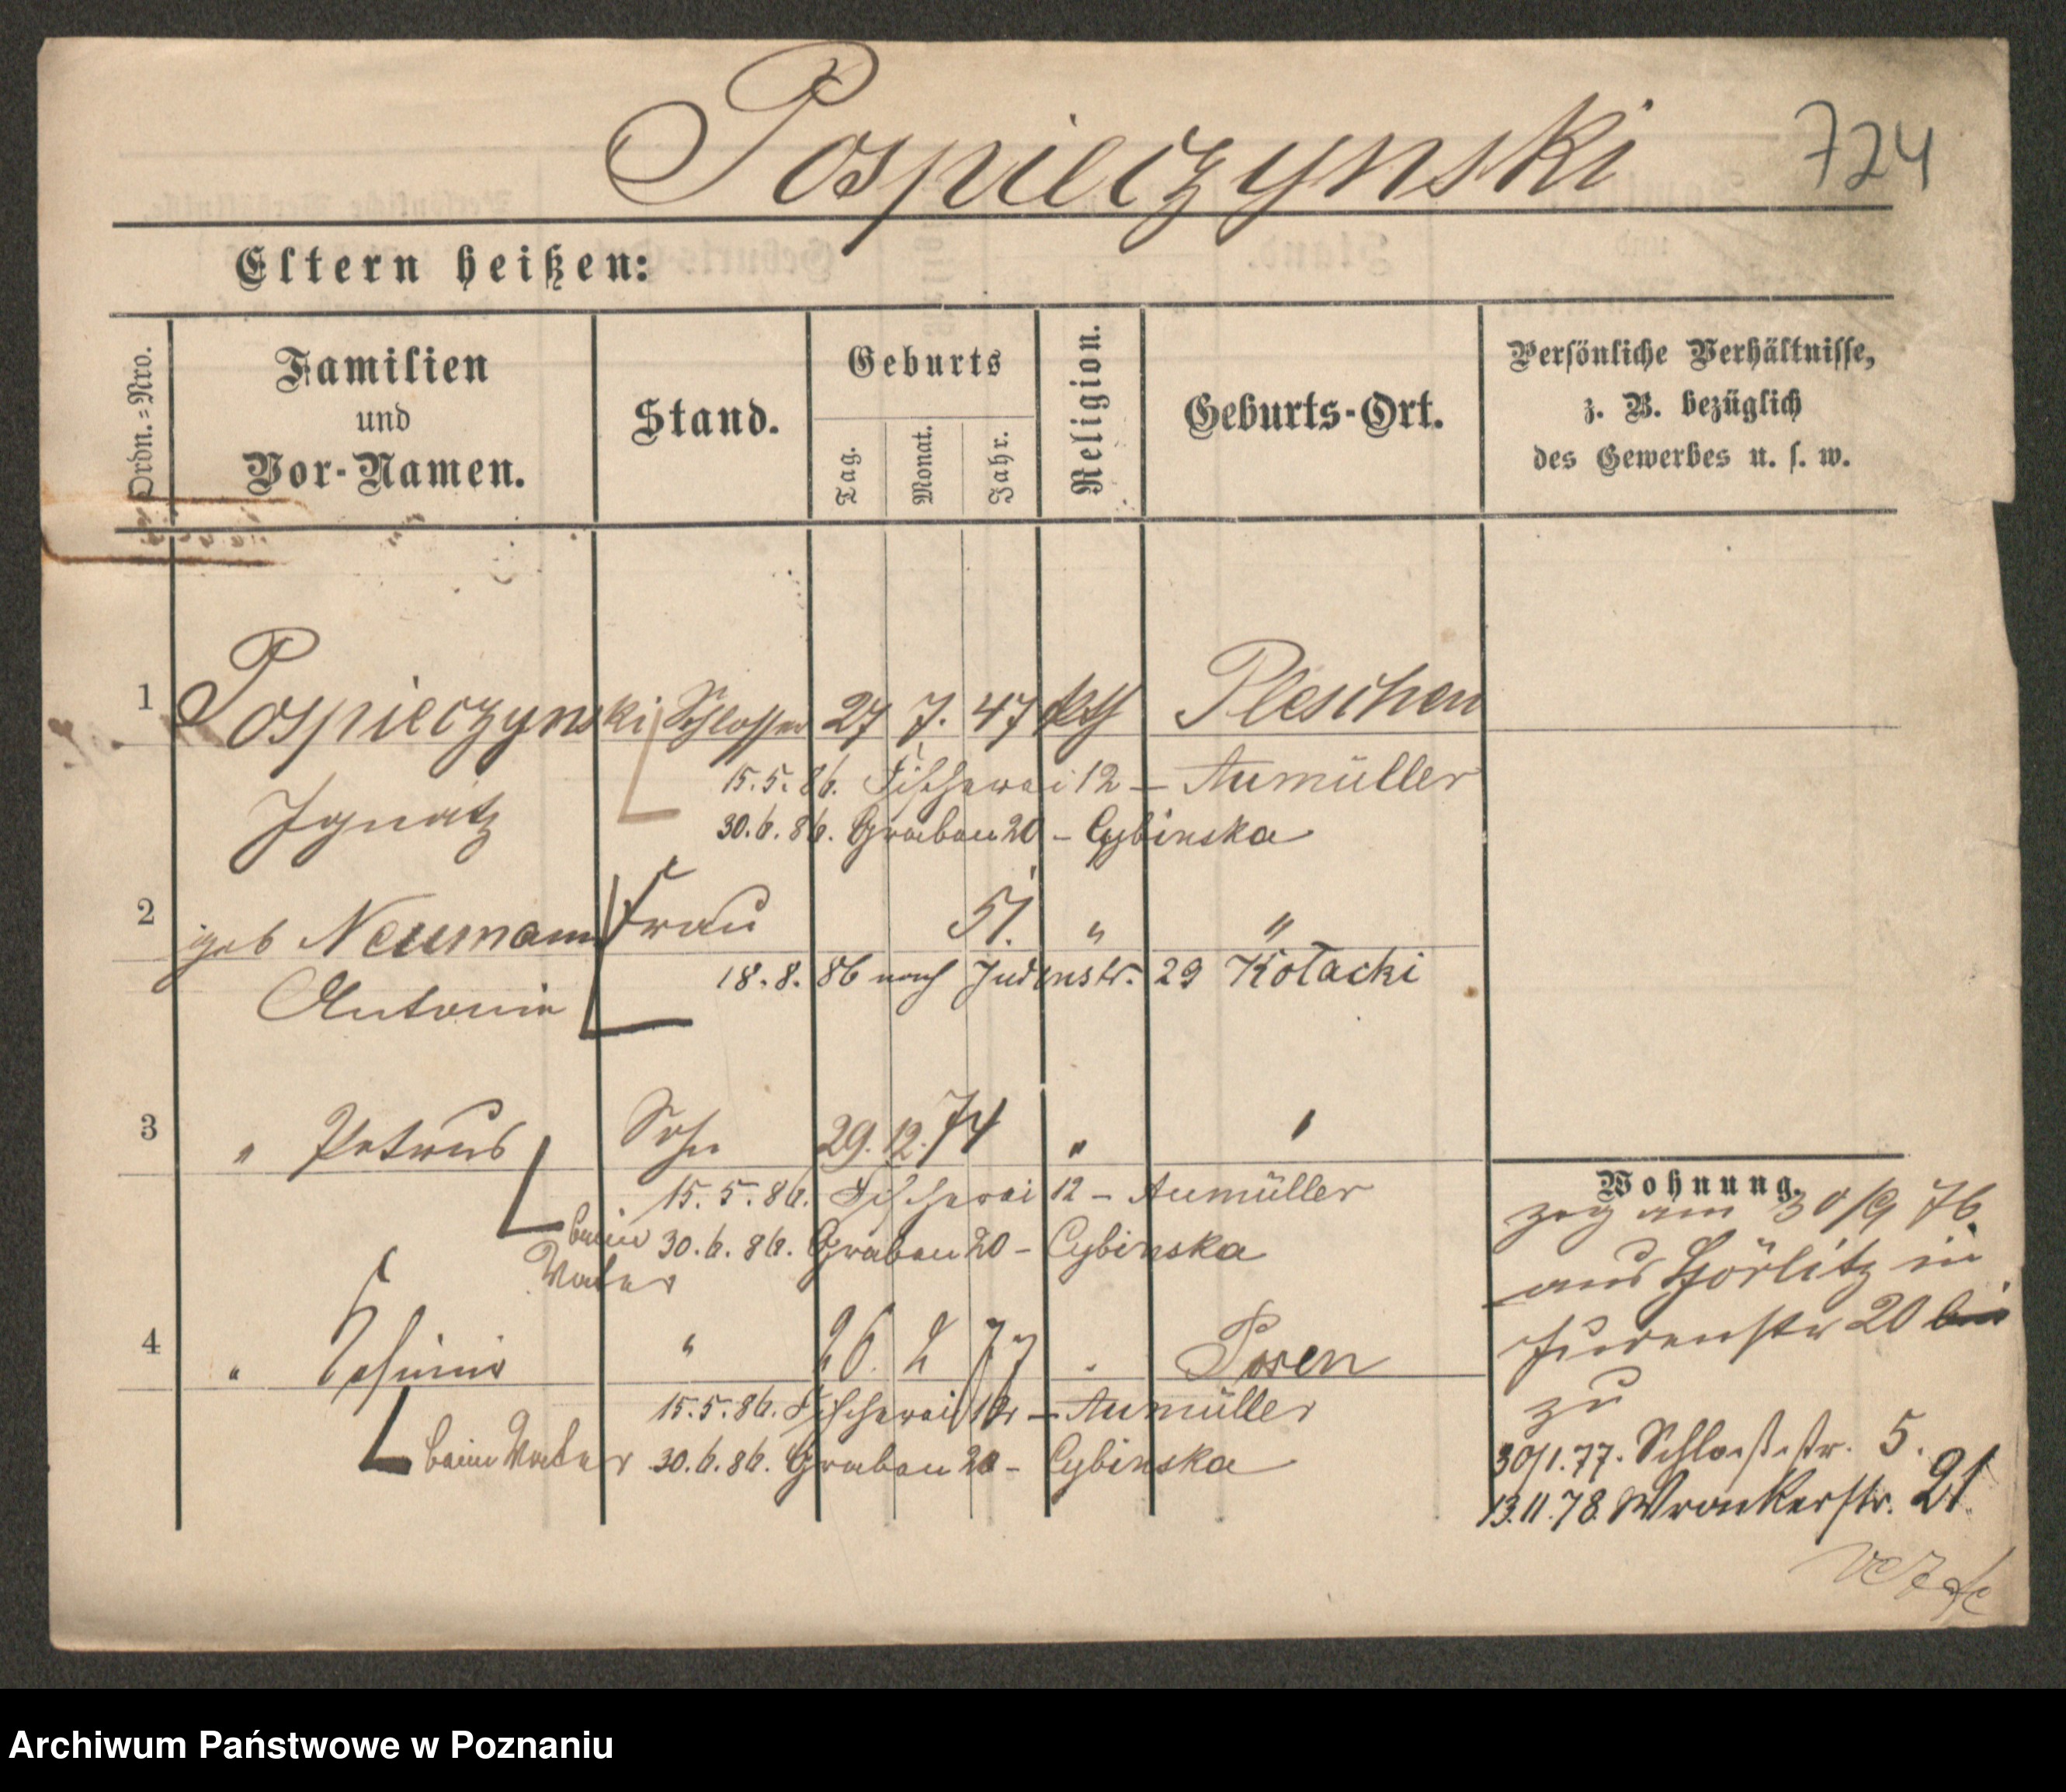 Pospieczynski 724
Eltern heißen:
Ordn.=Nro.
Familien
und
Vor-Namen.
Stand.
Geburts
Tag.
Monat.
Jahr.
Religion.
Geburts-Ort.
Persönliche Verhältnisse,
z. B. bezüglich
des Gewerbes u. s. w.
1 Pospieczynski Schlosser 27 7. 47 kth Pleschen
15.5.86. Fischerei 12 – Aumüller
Ignatz
30.6.86. Graben 20 – Cybinska
2 geb Neumann Frau 51. " "
18.8.86 nach Judenstr. 29 Kołacki
Antonie
3 " Petrus Sohn 29. 12. 74 " "
15.5.86. Fischerei 12 – Aumüller
beim 30.6.86. Graben 20 – Cybinska
Vater
4 " " 26. 2 77 " Posen
15.5.86. Fischerei 12 – Aumüller
beim Vater 30.6.86. Graben 20 – Cybinska
Wohnung.
zog am 30/9 76
aus Görlitz in
Judenstr 20 bei
zu
30/1.77. Schloßstr. 5.
13.11.78. Wronkerstr. 21.
Archiwum Państwowe w Poznaniu